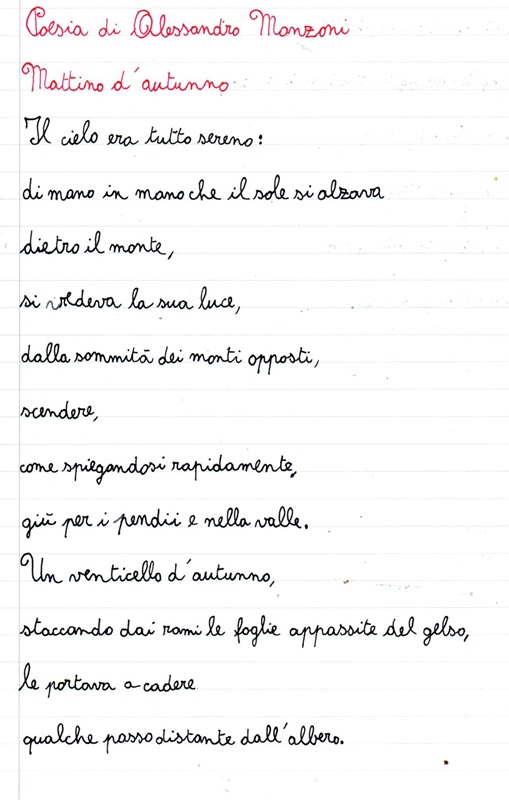 Poesia di Alessandro Manzoni
Mattino d'autunno
Il cielo era tutto sereno:
di mano in mano che il sole si alzava
dietro il monte,
si vedeva la sua luce,
dalla sommità dei monti opposti,
scendere,
come spiegandosi rapidamente,
giù per i pendii e nella valle.
Un venticello d'autunno,
staccando dai rami le foglie appassite del gelso,
le portava a cadere
qualche passo distante dall'albero.